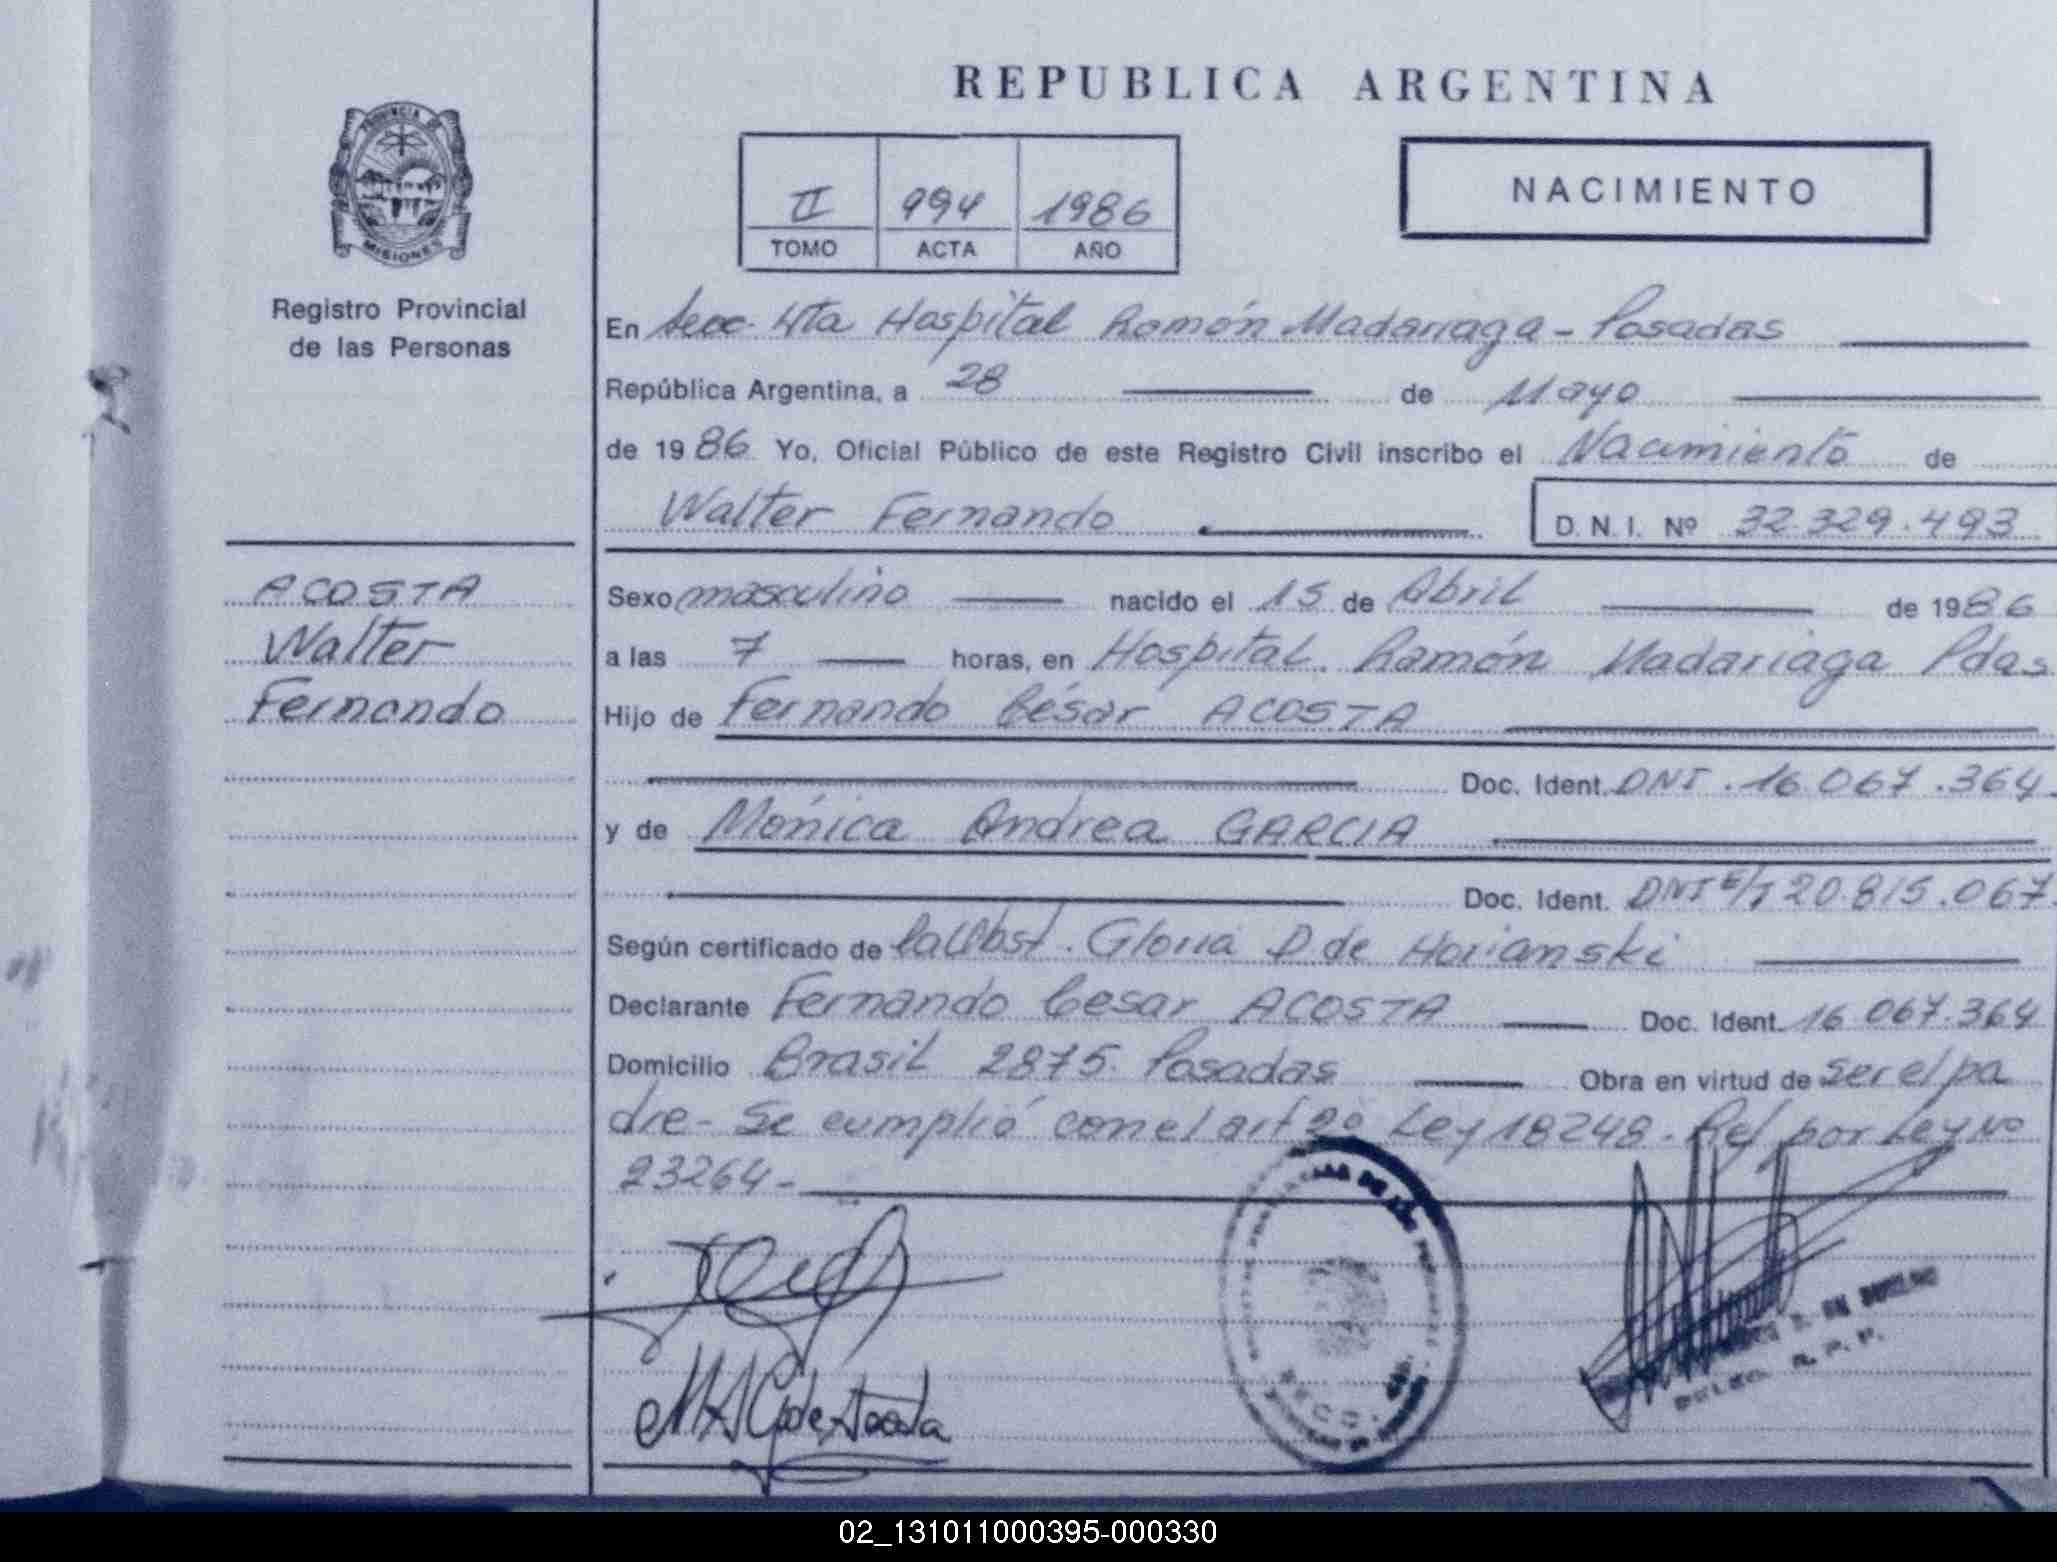 REPUBLICA ARGENTINA
PROVINCIA DE
MISIONES
Registro Provincial
de las Personas
II 994 1986
TOMO ACTA AÑO
NACIMIENTO
En Secc. 4ta Hospital Ramón Madariaga - Posadas
República Argentina, a 28 de Mayo
de 1986 Yo, Oficial Público de este Registro Civil inscribo el Nacimiento de
Walter Fernando D.N.I. Nº 32.329.493
ACOSTA
Walter
Fernando
Sexo masculino nacido el 15 de Abril de 1986
a las 7 horas, en Hospital Ramón Madariaga Pdas
Hijo de Fernando César ACOSTA
Doc. Ident. DNI. 16.067.364
y de Mónica Andrea GARCIA
Doc. Ident. DNI E/T 20.815.067
Según certificado de la Obst. Gloria D de Horianski
Declarante Fernando Cesar ACOSTA Doc. Ident. 16.067.364
Domicilio Brasil 2875. Posadas Obra en virtud de ser el pa
dre - Se cumplió con el art 2º Ley 18248. Ref por Ley Nº
23264 -
DELEG. R. P. P.
02_131011000395-000330